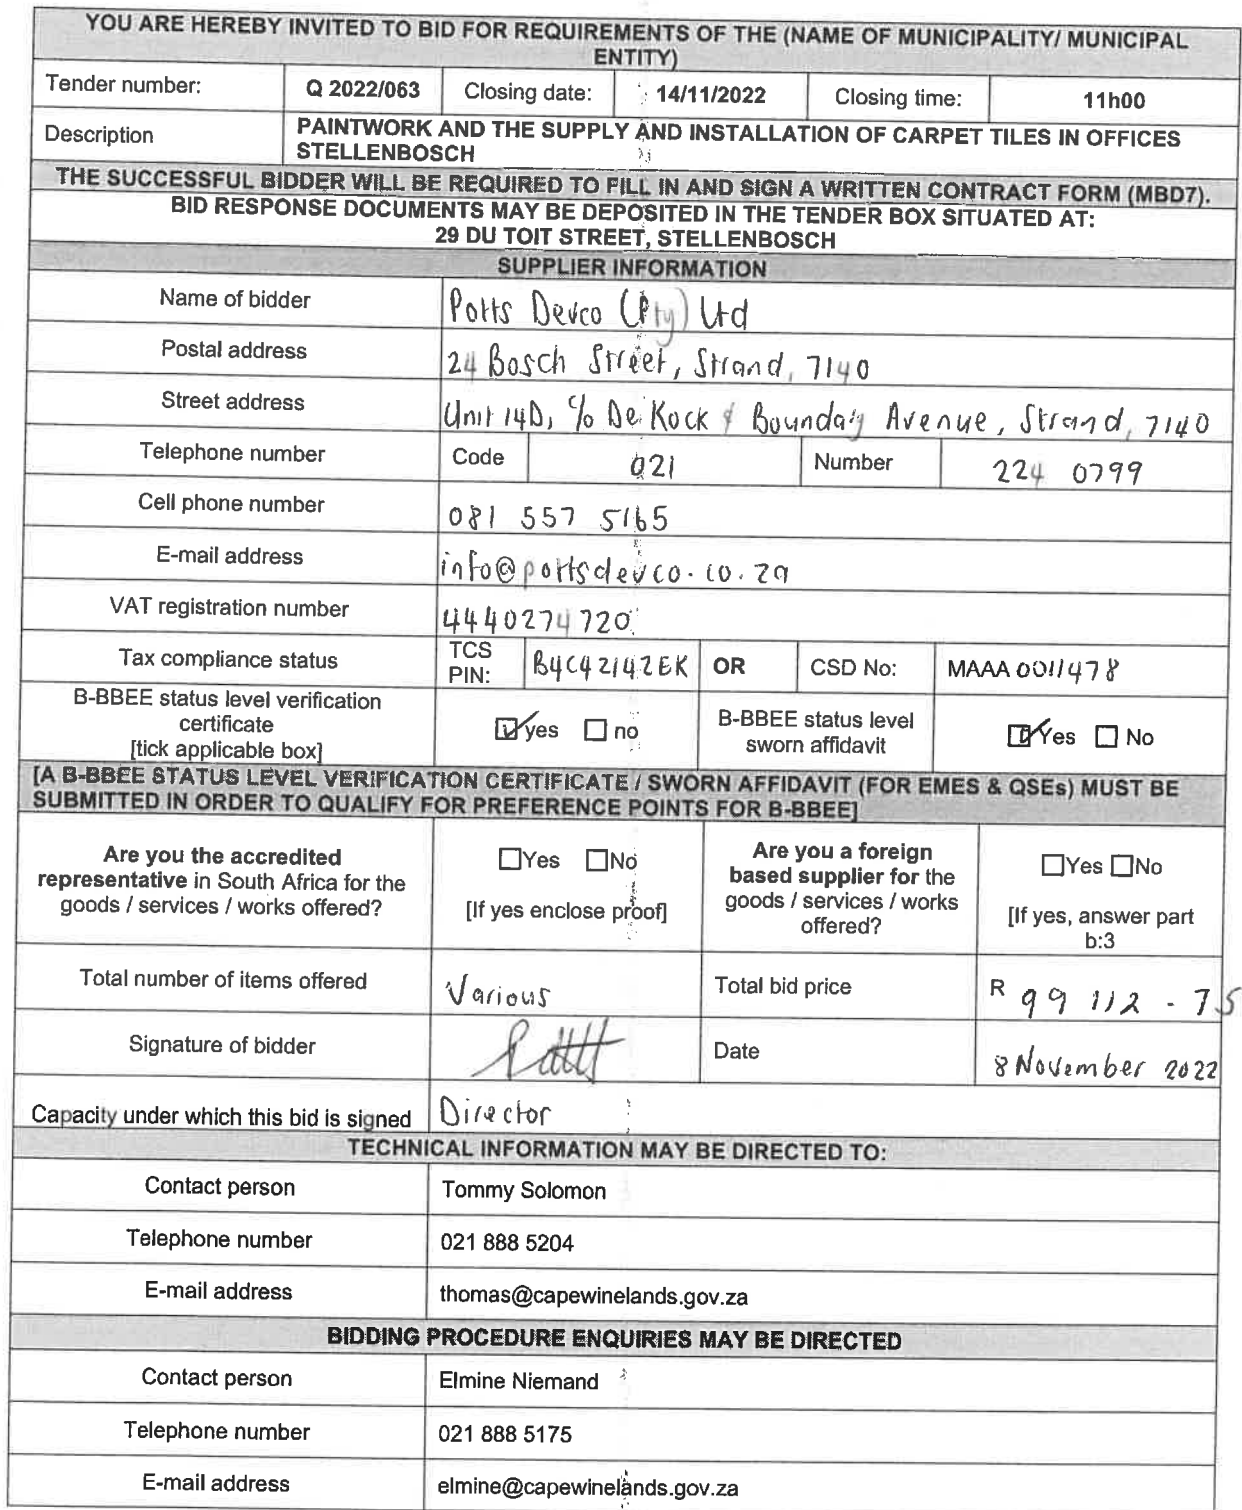 YOU ARE HEREBY INVITED TO BID FOR REQUIREMENTS OF THE (NAME OF MUNICIPALITY/ MUNICIPAL
ENTITY)
Tender number: Q 2022/063 Closing date: 14/11/2022 Closing time: 11h00
Description PAINTWORK AND THE SUPPLY AND INSTALLATION OF CARPET TILES IN OFFICES
STELLENBOSCH
THE SUCCESSFUL BIDDER WILL BE REQUIRED TO FILL IN AND SIGN A WRITTEN CONTRACT FORM (MBD7).
BID RESPONSE DOCUMENTS MAY BE DEPOSITED IN THE TENDER BOX SITUATED AT:
29 DU TOIT STREET, STELLENBOSCH
SUPPLIER INFORMATION
Name of bidder Potts Devco (Pty) Ltd
Postal address 24 Bosch Street, Strand, 7140
Street address Unit 14D, c/o De Kock & Boundary Avenue, Strand, 7140
Telephone number Code 021 Number 224 0799
Cell phone number 081 557 5165
E-mail address info@pottsdevco.co.za
VAT registration number 4440274720
Tax compliance status TCS PIN: B4C42142EK OR CSD No: MAAA 0011478
B-BBEE status level verification
certificate
[tick applicable box] yes no B-BBEE status level
sworn affidavit Yes No
[A B-BBEE STATUS LEVEL VERIFICATION CERTIFICATE / SWORN AFFIDAVIT (FOR EMES & QSEs) MUST BE
SUBMITTED IN ORDER TO QUALIFY FOR PREFERENCE POINTS FOR B-BBEE]
Are you the accredited
representative in South Africa for the
goods / services / works offered?
Yes No
[If yes enclose proof]
Are you a foreign
based supplier for the
goods / services / works
offered?
Yes No
[If yes, answer part
b:3
Total number of items offered Various Total bid price R 99 112 - 75
Signature of bidder Date 8 November 2022
Capacity under which this bid is signed Director
TECHNICAL INFORMATION MAY BE DIRECTED TO:
Contact person Tommy Solomon
Telephone number 021 888 5204
E-mail address thomas@capewinelands.gov.za
BIDDING PROCEDURE ENQUIRIES MAY BE DIRECTED
Contact person Elmine Niemand
Telephone number 021 888 5175
E-mail address elmine@capewinelands.gov.za